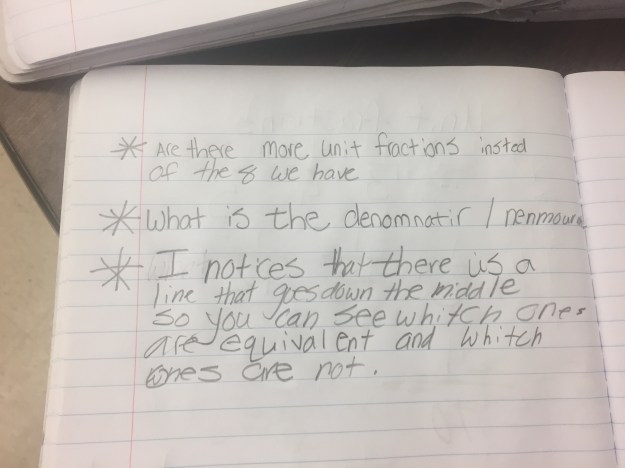 * Are there more unit fractions insted
of the 8 we have
* What is the denomnatir / nenmoura
* I notices that there is a
line that goes down the middle
so you can see whitch ones
are equivalent and whitch
ones are not.